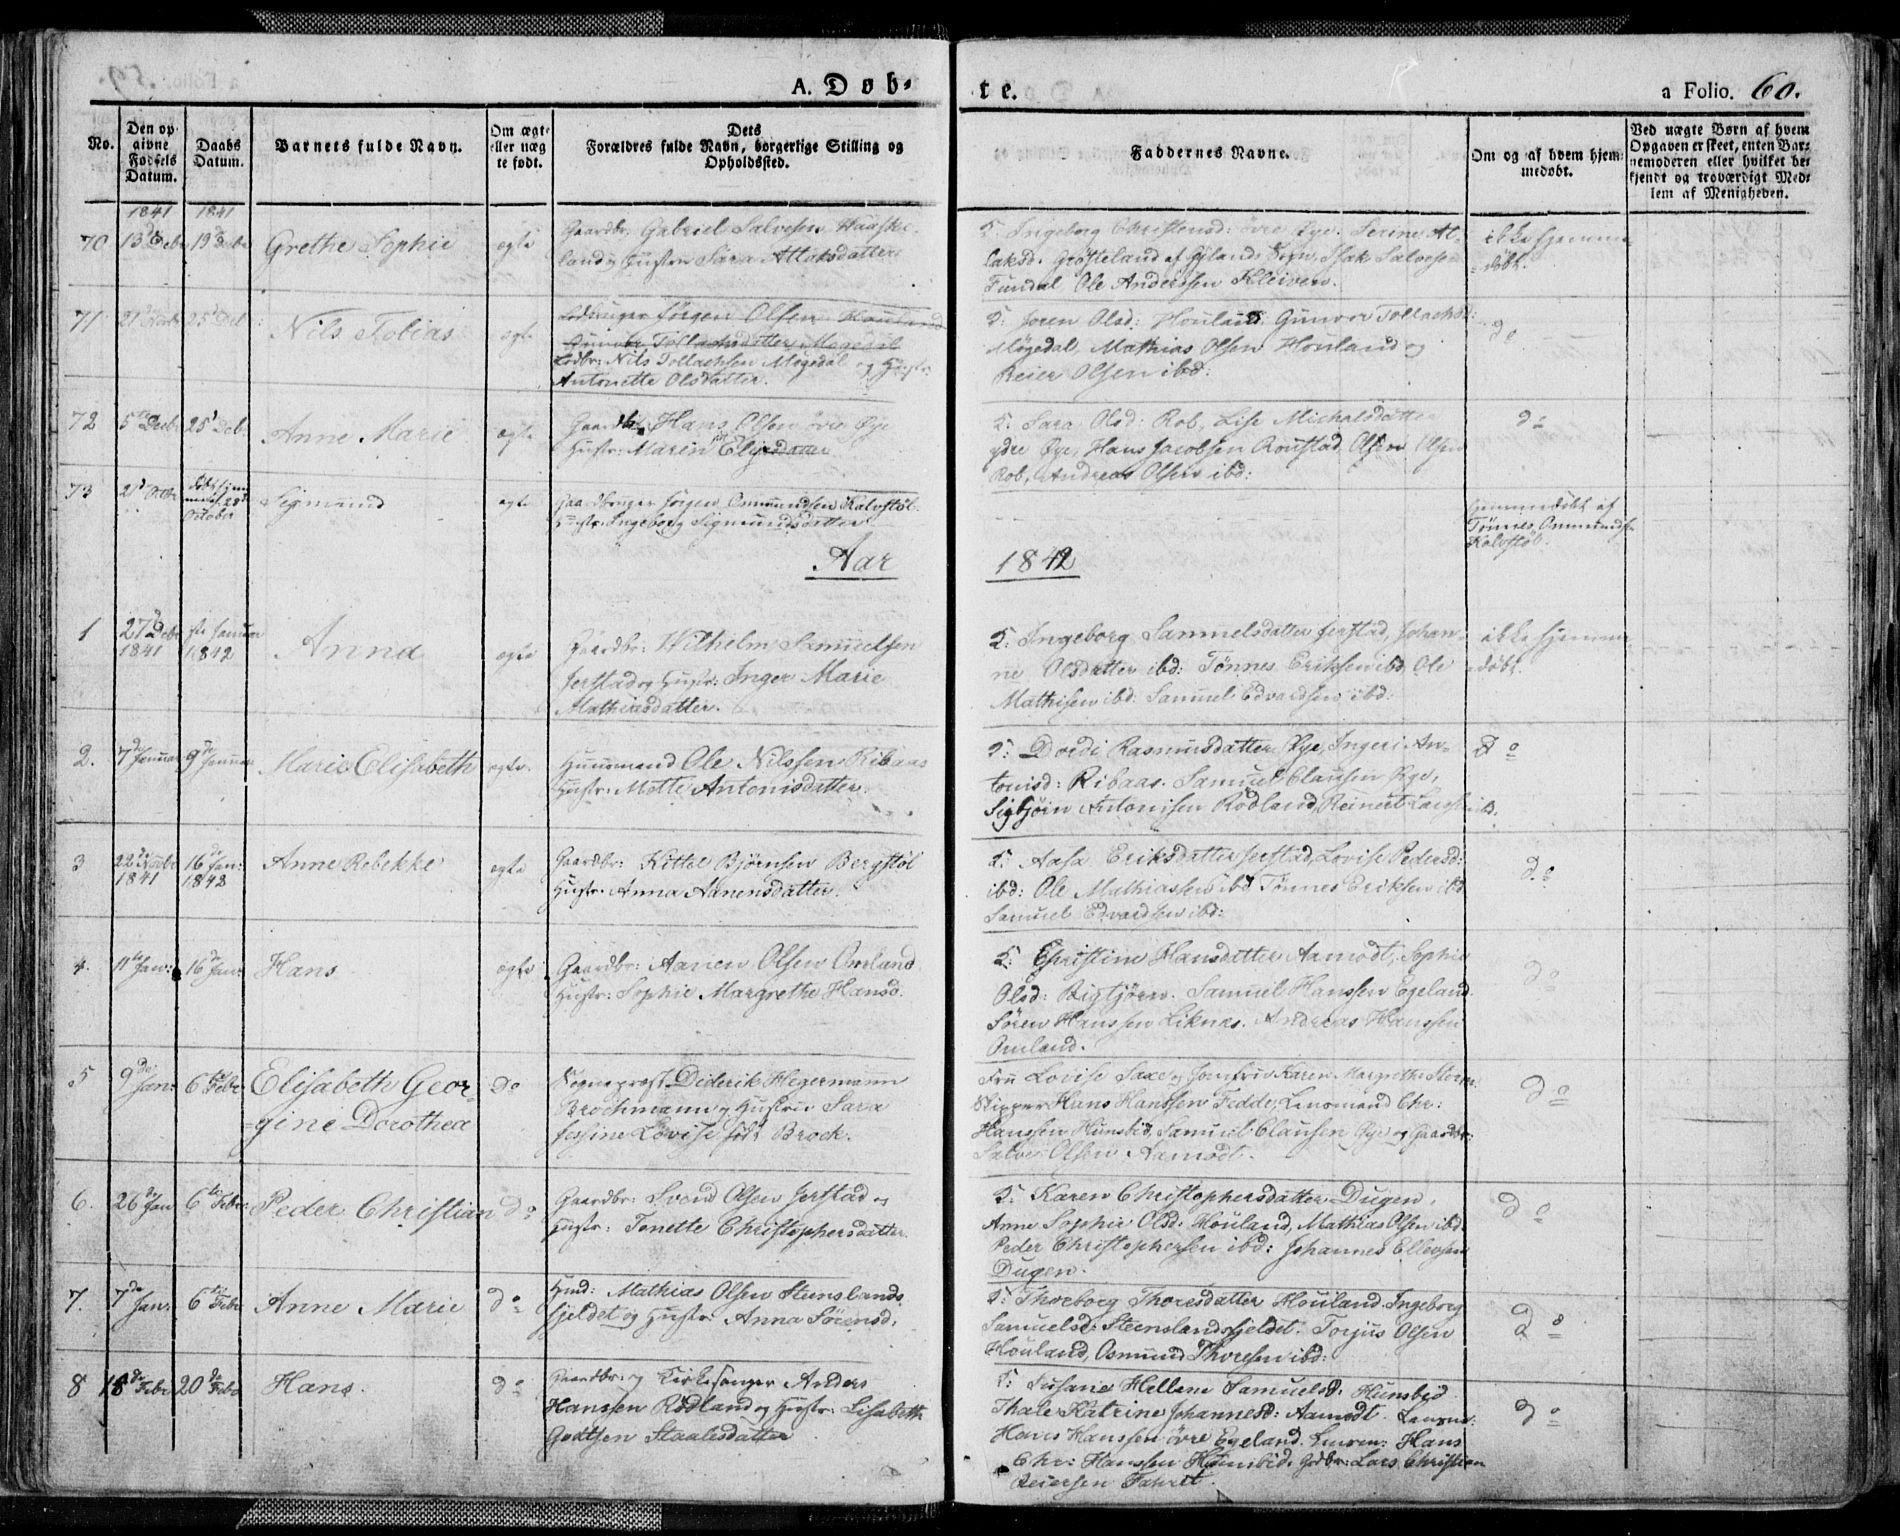 A. Døb-
te.
a Folio. 60.
No.
Den op-
givne
Fødsels
Datum.
Daabs
Datum.
Barnets fulde Navn.
Om ægte
eller uæg
te født.
Dets
Forældres fulde Navn, borgerlige Stilling og
Opholdssted.
Faddernes Navne.
Om og af hvem hjem-
medøbt.
Ved uægte Børn af hvem
Opgaven er skeet, enten Bar-
nemoderen eller hvilket be-
kjendt og troværdigt Med-
lem af Menigheden.
1841 1841
70 13de Debr 19de Debr Grethe Sophie ægte
Gaardbr: Gabriel Salvesen
land og Hustru Sara Atlaksdatter
F. Ingeborg Christensd: øvre Øye. Serine At-
laksd. Grøsteland af Gylands Sogn, Isak Salvesen
Fundal Ole Anderssen Kleiven.
ikke hjemme-
døbt.
71 25de Deb Nils Tobias ægte
Jørgen Olsen Houland
Gunvor Tollachsdatter Møgedal
Ledbr: Nils Tollachsen Møgedal og Hustr:
Antonette Olsdatter.
F: Joren Olsd: Houland, Gunvor Tollachsd:
Møgedal, Mathias Olsen Houland og
Reier Olsen ibd:
do
72 5te Decb 25de Deb. Anne Marie ægte
Gaardbr: Hans Olsen øvre Øye
Hustr: Maren Elisdatter
F. Sara Olsd: Rob, Lise Michalsdatter
ydre Øye, Hans Jacobsen Roustad, Olsen
Rob, Andreas Olsen ibd:
do
73 Sigmund ægte
October
Gaardbruger Jørgen Ommundsen Kalvstøl.
Hustr: Ingeborg Sigmundsdatter
Hjemmedøbt af
Tønnes Ommundsen
Kalvstøl.
Aar
1842
1 27de Debr 1841 Januar 1842 Anna ægte
Gaardbr: Wilhelm Samuelsen
Jerstad og Hustr: Inger Marie
Mathiasdatter.
F. Ingeborg Samuelsdatter Jerstad, Johan-
ne Olsdatter ibd: Tønnes Eriksen ibd, Ole
Mathisen ibd: Samuel Edvardsen ibd:
ikke hjemme-
døbt.
2. 7de Januar 9de Januar Marie Elisabeth ægte.
Huusmand Ole Nilssen Ribaas
Hustr: Mette Antonisdatter.
F: Dordi Rasmusdatter Øye, Ingeri An-
tonisd: Ribaas. Samuel Clausen Øye,
Sigbjørn Antonisen Rødland, Reinert Larssen ibd.
do
3 22de Novbr 1841 16de Jan: 1842 Anne Rebekke ægte
Gaardbr: Kittel Bjørnsen Bergstøl
Hustr: Anna Aanensdatter.
F. Aasa Eriksdatter Jerstad, Lovise Pedersd:
ibd: Ole Mathiassen ibd Tønnes Eriksen ibd
Samuel Edvardsen ibd:
do
4. 11te Jan: 16de Jan: Hans ægte
Gaardbr: Aanen Olsen Omland
Hustr: Sophie Margrethe Hansd.
F. Christine Hansdatter Aamodt, Sophie
Olsd: Bigtjørn. Samuel Hanssen Egeland.
Søren Hanssen Liknes. Andreas Hanssen
Omland.
do
5 9de Jan: 6te Febr. Elisabeth Geor-
gine Dorothea do
Sognepræst Diderik Hegermann
Brochmann og Hustrue Sara
Jessine Lovise født Brock.
Fru Lovise Saxe og Jomfrue Karen Margrethe
Skipper Hans Hanssen Fedde, Lensmand Chr:
Hanssen Hunsbid, Samuel Clausen Øye og Gaardbr:
Salve Olsen Aamodt.
do
6. 26de Jan 6te Febr: Peder Christian do
Gaardbr: Svend Olsen Jerstad og
Hustr: Tonette Christophersdatter.
F. Karen Christophersdatter Dugen,
Anne Sophie Olsd: Houland, Mathias Olsen ibd
Peder Christophersen ibd: Johannes Ellevsen
Dugen.
do
7. 7de Jan: 6te Febr Anne Marie do
Huud: Mathias Olsen Steenslands-
fjeldet og Hustr: Anna Sørensd:
F: Thorborg Thoresdatter Houland. Ingeborg
Samuelsd: Steenslandsfjeldet. Torjus Olsen
Houland, Osmund Thoresen ibd:
do
8 18de Febr 20de Febr Hans. do
Gaardbr: og Kirkesanger Anders
Hanssen Rødland og Hustr: Lisabeth
Godtsen Staalesdatter
F: Susane Hellene Samuelsd: Hunsbid
Thale Katrine Johannesd: Aamodt. Lensm:
Hans Hanssen øvre Egeland. Lensm: Hans
Chr: Hanssen Hunsbid. Gdbr: Lars Christian
Reiersen Fahret.
do